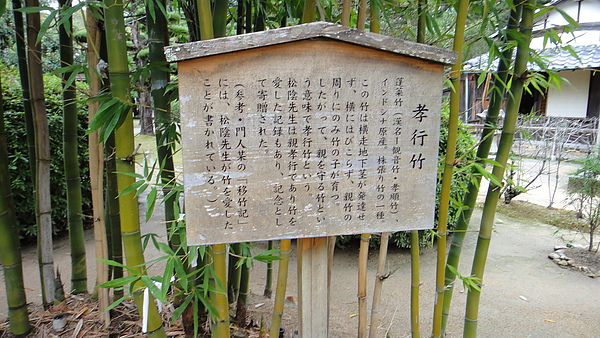 孝行竹
蓬莱竹(漢名)観音竹・孝順竹)、
インドシナ原産。株張り竹の一種。
この竹は横走地下茎が発達せ
ず、横にはびこらず、親竹の
周りにのみ竹の子が育つ。
したがって、親を守る竹とい
う意味で孝行竹という。
松陰先生は親孝行であり竹を
愛した記録もあり、記念とし
て寄贈された。
(参考・門人某の「移竹記」
には、松陰先生が竹を愛した
ことが書かれている。)